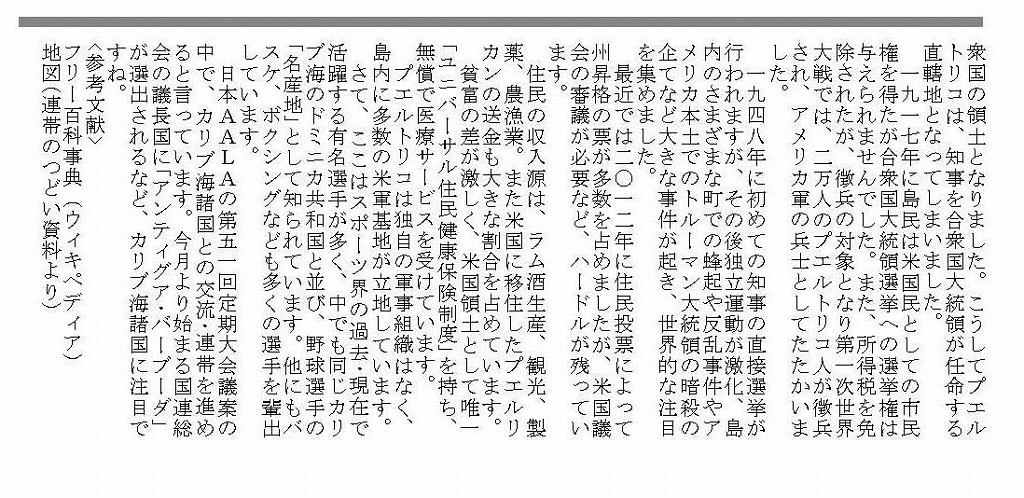 衆国の領土となりました。こうしてプエル
トリコは、知事を合衆国大統領が任命する
直轄地となってしまいました。
一九一七年に島民は米国民としての市民
権を得たが合衆国大統領選挙への選挙権は
与えられませんでした。また、所得税を免
除されたが、徴兵の対象となり第一次世界
大戦では、二万人のプエルトリコ人が徴兵
され、アメリカ軍の兵士としてたたかいま
した。
一九四八年に初めての知事の直接選挙が
行われますが、その後独立運動が激化、島
内のさまざまな町での蜂起や反乱事件やア
メリカ本土でのトルーマン大統領の暗殺の
企てなど大きな事件が起き、世界的な注目
を集めました。
最近では二〇一二年に住民投票によって
州昇格の票が多数を占めましたが、米国議
会の審議が必要など、ハードルが残ってい
ます。
住民の収入源は、ラム酒生産、観光、製
薬、農漁業。また米国に移住したプエルリ
カンの送金も大きな割合を占めています。
貧富の差が激しく、米国領土として唯一
「ユニバーサル住民健康保険制度」を持ち、
無償で医療サービスを受けています。
プエルトリコは独自の軍事組織はなく、
島内に多数の米軍基地が立地しています。
さて、ここはスポーツ界の過去・現在で
活躍する有名選手が多く、中でも同じカリ
ブ海のドミニカ共和国と並び、野球選手の
「名産地」として知られています。他にもバ
スケ、ボクシングなども多くの選手を輩出
しています。
日本ＡＡＬＡの第五一回定期大会議案の
中で、カリブ海諸国との交流・連帯を進め
ると言っています。今月より始まる国連総
会の議長国に「アンティグア・バーブーダ」
が選出されるなど、カリブ海諸国に注目で
すね。
〈参考文献〉
フリー百科事典（ウィキペディア）
地図（連帯のつどい資料より）